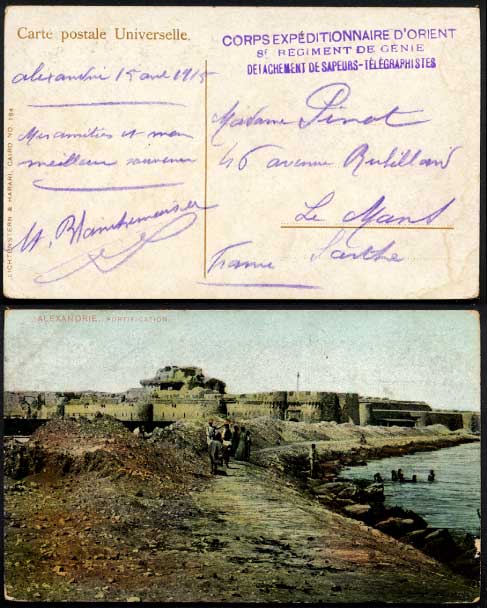 Carte postale Universelle.
CORPS EXPÉDITIONNAIRE D'ORIENT
8e RÉGIMENT DE GÉNIE
DÉTACHEMENT DE SAPEURS-TÉLÉGRAPHISTES
alexandrie 15 avril 1915
Mes amitiés et mon
meilleur souvenir
Madame Pinot
46 avenue Rubillard
Le Mans
France Sarthe
LICHTENSTERN & HARARI, CAIRO NO. 184
ALEXANDRIE. FORTIFICATION.